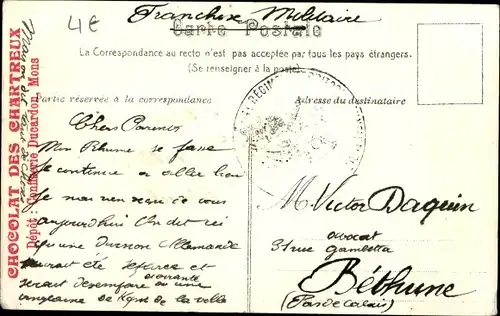 4€
Franchise Militaire
Carte Postale
La Correspondance au recto n'est pas acceptée par tous les pays étrangers.
(Se renseigner à la poste)
Partie réservée à la correspondance
Adresse du destinataire
CHOCOLAT DES CHARTREUX
Dépôt : Confiserie Ducardon, Mons
REGIME
Chers Parents
Mon Rhume se passe
Je continue a aller bien
Je n'ai rien reçu de vous
aujourd'hui On dit ici
qu'une Division Allemande
aurait été et
serait désemparée ou une
de Kgms de la ville
M. Victor Daquin
avocat
31 rue Gambetta
Béthune
(Pas de Calais)